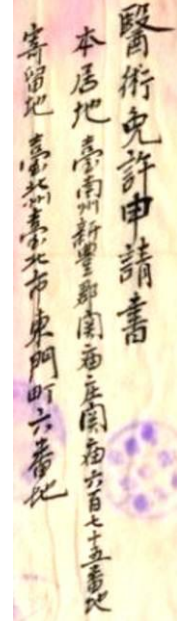 醫術免許申請書
本居地 臺南州新豐郡関庙庄関庙六百七十五番地
寄留地 臺北州臺北市東門町六番地